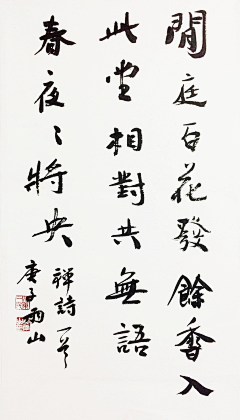 閒庭百花發餘香入
此堂相對共無語
春夜〻將央
禪詩一首
庚子雨山